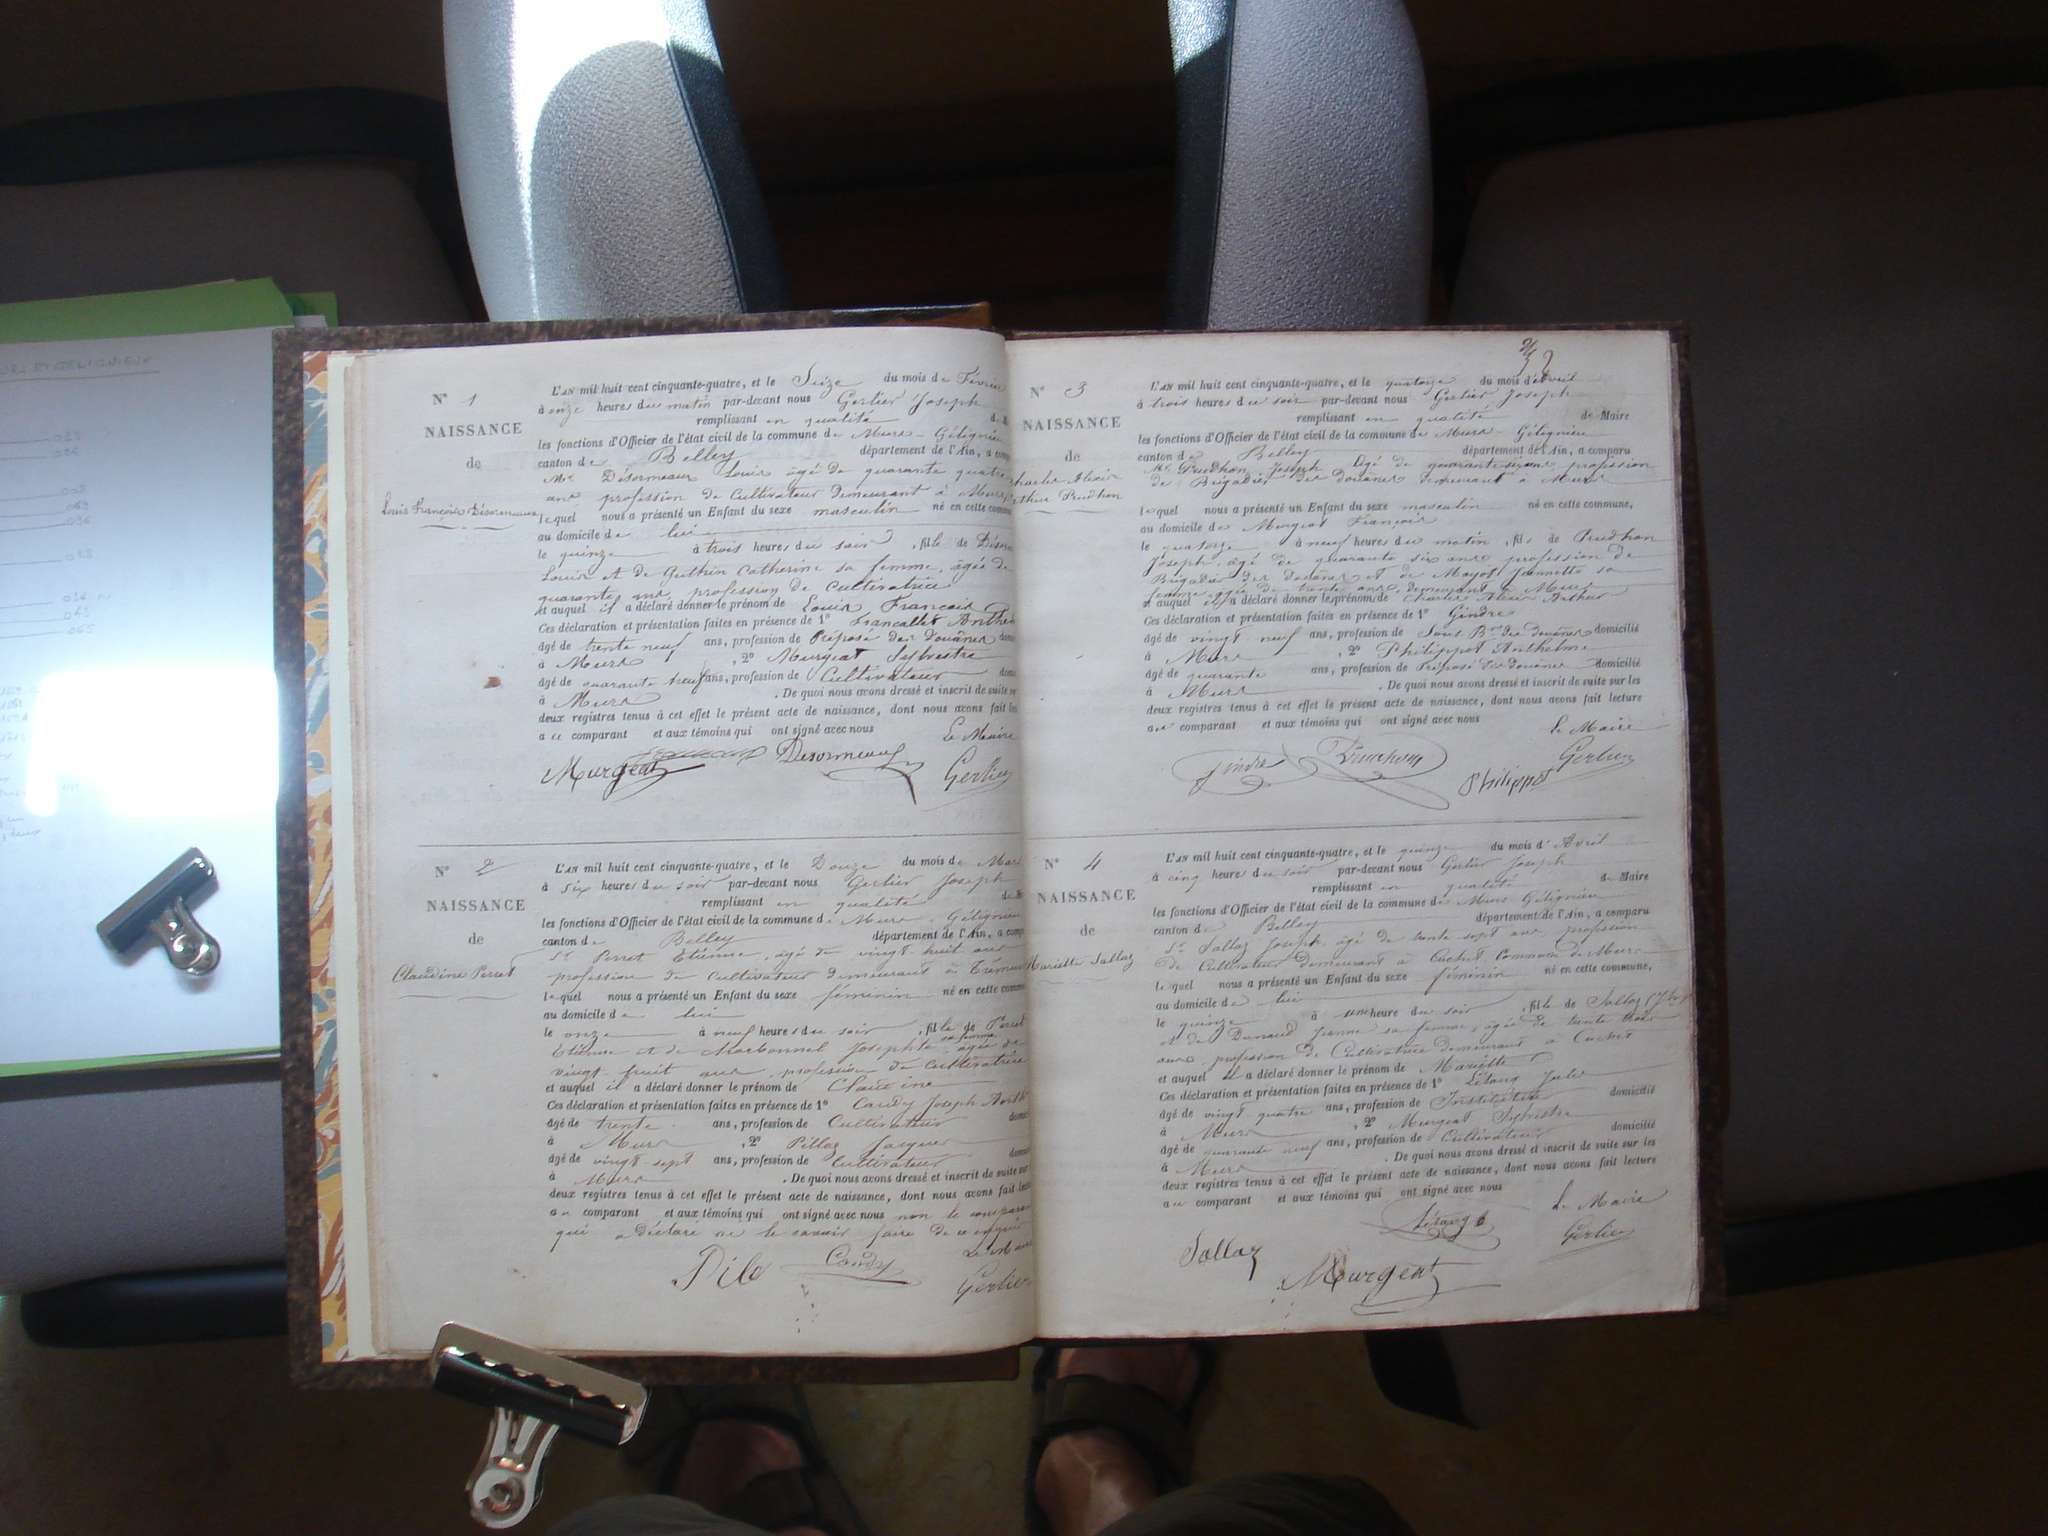 N° 1
NAISSANCE
de
Louis François Désormeaux
L'AN mil huit cent cinquante-quatre, et le Seize du mois de Février
à onze heures du matin par-devant nous Gerlier Joseph
remplissant en qualité de
les fonctions d'Officier de l'état civil de la commune de Murs-Gélignieux
canton de Belley département de l'Ain, a comparu
Mr Désormeaux Louis âgé de quarante quatre
ans profession de Cultivateur demeurant à Murs
lequel nous a présenté un Enfant du sexe masculin né en cette commune
au domicile de lui
le quinze à trois heures du soir, fils de Désor
Louis et de Guthin Catherine sa femme, âgée de
quarante ans profession de Cultivatrice
et auquel il a déclaré donner le prénom de Louis François
Ces déclaration et présentation faites en présence de 1° Francallet Anthe
âgé de trente neuf ans, profession de Préposé des Douanes
à Murs, 2° Murgeat Sylvestre
âgé de quarante neuf ans, profession de Cultivateur
à Murs. De quoi nous avons dressé et inscrit de suite sur
deux registres tenus à cet effet le présent acte de naissance, dont nous avons fait lec
au comparant et aux témoins qui ont signé avec nous Le Maire
Murgeat Desormeaux Gerlier
N° 2
NAISSANCE
de
Claudine Perret
L'AN mil huit cent cinquante-quatre, et le Douze du mois de Mars
à six heures du soir par-devant nous Gerlier Joseph
remplissant en qualité de
les fonctions d'Officier de l'état civil de la commune de Murs-Gélignieux
canton de Belley département de l'Ain, a comp
Sr Perret Etienne, âgé de vingt huit ans
profession de Cultivateur demeurant à
lequel nous a présenté un Enfant du sexe féminin né en cette commune
au domicile de lui
le onze à neuf heures du soir, fille de Perret
Etienne et de Josephte sa femme âgée de
vingt huit ans, profession de Cultivatrice
et auquel il a déclaré donner le prénom de Claudine
Ces déclaration et présentation faites en présence de 1° Caudy Joseph Anth
âgé de trente ans, profession de Cultivateur
à Murs, 2° Pillaz Jacques
âgé de vingt sept ans, profession de Cultivateur
à Murs. De quoi nous avons dressé et inscrit de suite sur
deux registres tenus à cet effet le présent acte de naissance, dont nous avons fait lec
au comparant et aux témoins qui ont signé avec nous non le comparant
qui a déclaré ne le savoir faire de ce enquis
Le Maire
Caudy Gerlier
N° 3
NAISSANCE
de
Charles Alexis
Arthur Prudhon
L'AN mil huit cent cinquante-quatre, et le quatorze du mois d'avril
à trois heures du soir par-devant nous Gerlier Joseph
remplissant en qualité de Maire
les fonctions d'Officier de l'état civil de la commune de Murs-Gélignieux
canton de Belley département de l'Ain, a comparu
Mr Prudhon Joseph âgé de quarante six ans profession
de Brigadier des douanes demeurant à Murs
lequel nous a présenté un Enfant du sexe masculin né en cette commune,
au domicile de Murgeat François
le quatorze à neuf heures du matin, fils de Prudhon
Joseph, âgé de quarante six ans profession de
Brigadier des Douanes et de Mayot Jeannette sa
femme âgée de trente ans, demeurant à Murs
et auquel il a déclaré donner le prénom de Charles Alexis Arthur
Ces déclaration et présentation faites en présence de 1° Gindre
âgé de vingt neuf ans, profession de Sous Bier des douanes domicilié
à Murs, 2° Philippot Anthelme
âgé de quarante ans, profession de Préposé des douanes domicilié
à Murs. De quoi nous avons dressé et inscrit de suite sur les
deux registres tenus à cet effet le présent acte de naissance, dont nous avons fait lecture
au comparant et aux témoins qui ont signé avec nous
Le Maire
Gindre Prudhon Philippot Gerlier
N° 4
NAISSANCE
de
Mariette Sallaz
L'AN mil huit cent cinquante-quatre, et le quinze du mois d'Avril
à cinq heures du soir par-devant nous Gerlier Joseph
remplissant en qualité de Maire
les fonctions d'Officier de l'état civil de la commune de Murs-Gélignieux
canton de Belley département de l'Ain, a comparu
Sr Sallaz Joseph, âgé de trente sept ans, profession
de Cultivateur demeurant à Cuchet Commune de Murs
lequel nous a présenté un Enfant du sexe féminin né en cette commune,
au domicile de lui
le quinze à une heure du soir, fille de Sallaz
et de Jeanne sa femme, âgée de trente trois
ans, profession de Cultivatrice demeurant à Cuchet
et auquel il a déclaré donner le prénom de Mariette
Ces déclaration et présentation faites en présence de 1° Létang Jules
âgé de vingt quatre ans, profession de Instituteur domicilié
à Murs, 2° Murgeat Sylvestre
âgé de quarante neuf ans, profession de Cultivateur domicilié
à Murs. De quoi nous avons dressé et inscrit de suite sur les
deux registres tenus à cet effet le présent acte de naissance, dont nous avons fait lecture
au comparant et aux témoins qui ont signé avec nous
Le Maire
Létang
Sallaz Murgeat Gerlier